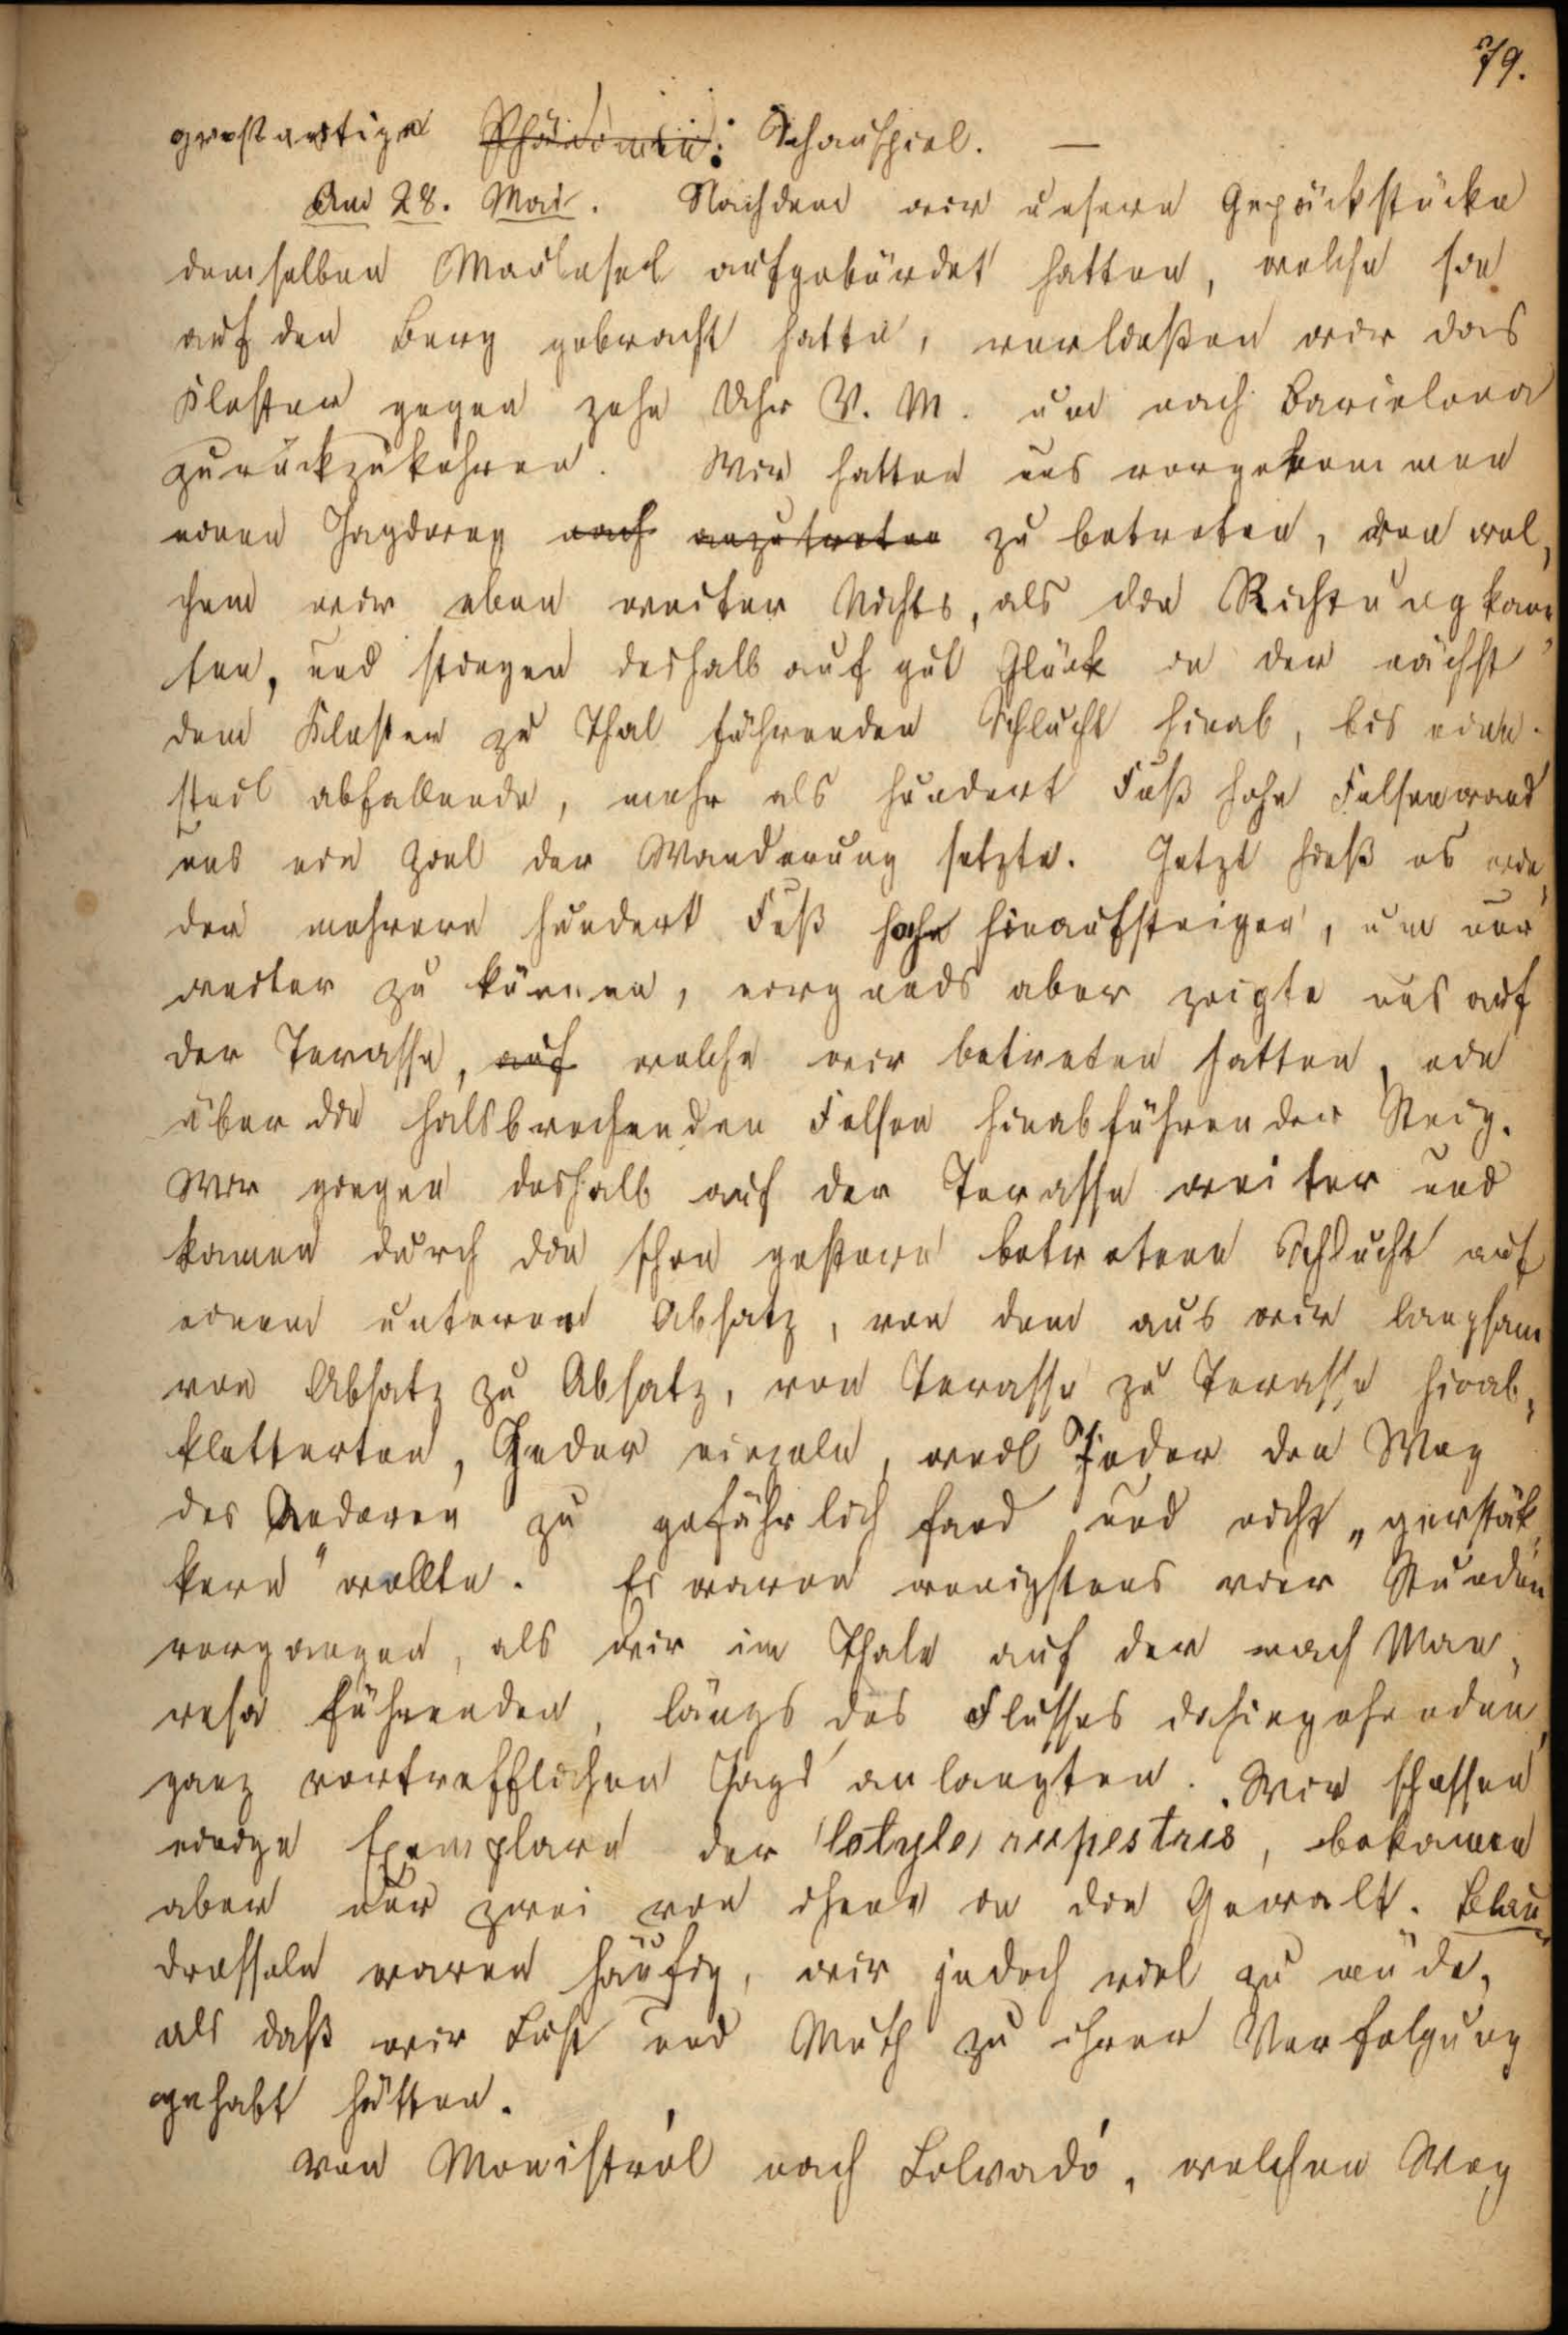 79.
großartige Phänomen: Schauspiel. —
Am 28. Mai. Nachdem wir unsere Gepäckstücke
demselben Maulesel aufgebürdet hatten, welche sie
auf den Berg gebracht hatte, verließen wir das
Kloster gegen zehn Uhr V. M. um nach Barcelona
zurückzukehren. Wir hatten uns vorgenommen
einen Jagdweg nach anzutreten zu betreten, von wel¬
chem wir eben weiter Nichts, als die Richtung kann¬
ten, und stiegen deshalb auf gut Glück in der nächst
dem Kloster zu Thal führenden Schlucht hinab, bis eine
steil abfallende, mehr als hundert Fuß hohe Felsenwand
uns ein Ziel der Wanderung setzte. Jetzt hieß es wie¬
der mehrere hundert Fuß hohe hinaufsteigen, um nur
weiter zu können, nirgends aber zeigte uns auf
der Terasse, auf welche wir betreten hatten, ein
über die halsbrechenden Felsen hinabführender Steig.
Wir giengen deshalb auf der Terasse weiter und
kamen durch die schon gestern betretene Schlucht auf
einem unteren Absatz, von dem aus wir langsam
von Absatz zu Absatz, von Terasse zu Terasse hinab¬
kletterten, Jeder einzeln, weil Jeder den Weg
des Anderen zu gefährlich fand und nicht „gerstäk¬
kern" wollte. Es waren wenigstens vier Stunden
vergangen, als wir im Thale auf der nach Man¬
resa führenden, längs des Flusses dahingehenden,
ganz vortrefflichen Jagd anlangten. Wir schossen
einige Exemplare der Cotyle rupestris, bekamen
aber nur zwei von ihnen in die Gewalt. Blau¬
drosseln waren häufig, wir jedoch viel zu müde,
als daß wir Lust und Muth zu ihrer Verfolgung
gehabt hätten.
Von Monistról nach Lolvadó, welchen Weg